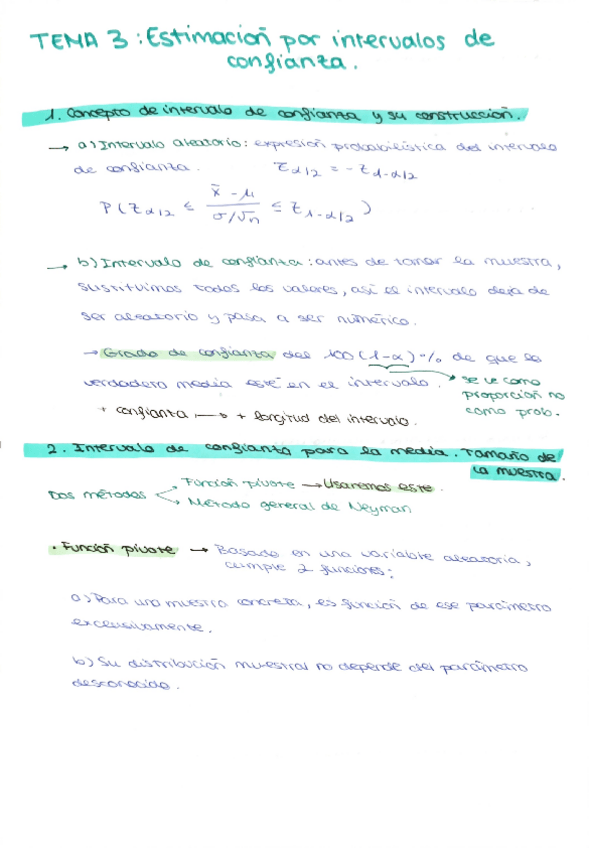 TEMA 3: Estimación por intervalos de
confianza.
1. Concepto de intervalo de confianza y su construcción.
→ a) Intervalo aleatorio: expresión probabilística del intervalo
de confianza. Z α/2 = - Z 1-α/2
P(Z α/2 ≤ (x̄ - μ)/(σ/√n) ≤ Z 1-α/2)
→ b) Intervalo de confianza: antes de tomar la muestra,
sustituimos todos los valores, así el intervalo deja de
ser aleatorio y pasa a ser numérico.
→ Grado de confianza del 100(1-α)% de que la
verdadera media esté en el intervalo. → se ve como
proporción no
como prob.
+ confianza → + longitud del intervalo.
2. Intervalo de confianza para la media. Tamaño de
la muestra.
Dos métodos
Función pivote → Usaremos este.
Método general de Neyman
• Función pivote → Basado en una variable aleatoria,
cumple 2 funciones:
a) Para una muestra concreta, es función de ese parámetro
excensivamente.
b) Su distribución muestral no depende del parámetro
desconocido.